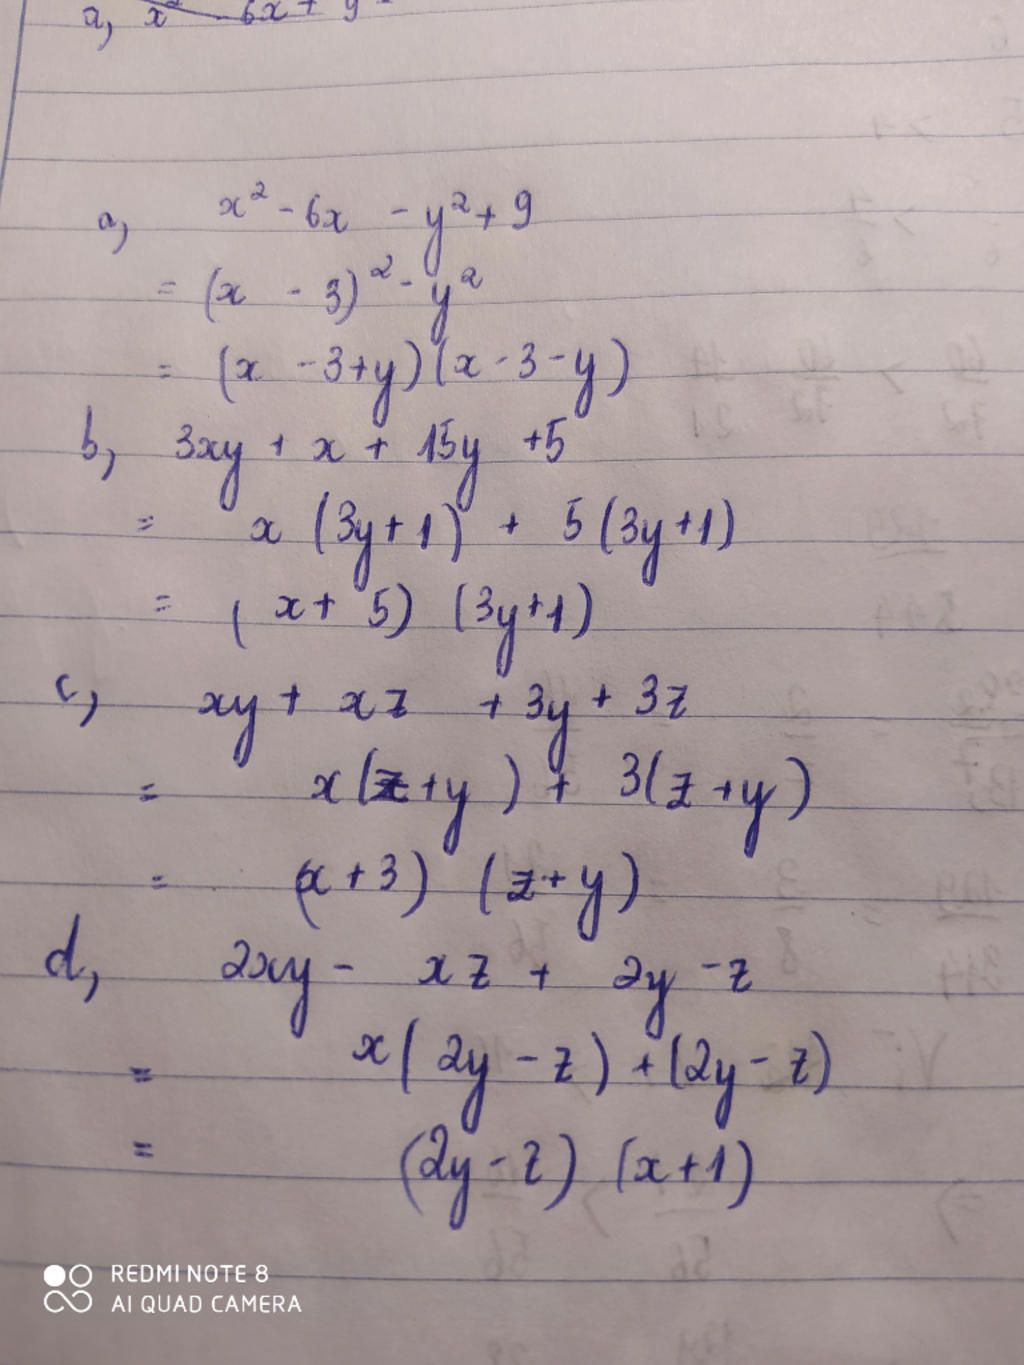 a, x² - 6x + 9
a, x² - 6x - y² + 9
= (x - 3)² - y²
= (x - 3 + y)(x - 3 - y)
b, 3xy + x + 15y + 5
= x (3y + 1) + 5 (3y + 1)
= (x + 5) (3y + 1)
c, xy + xz + 3y + 3z
= x(z + y) + 3(z + y)
= (x + 3) (z + y)
d, 2xy - xz + 2y - z
= x(2y - z) + (2y - z)
= (2y - z) (x + 1)
REDMI NOTE 8
AI QUAD CAMERA